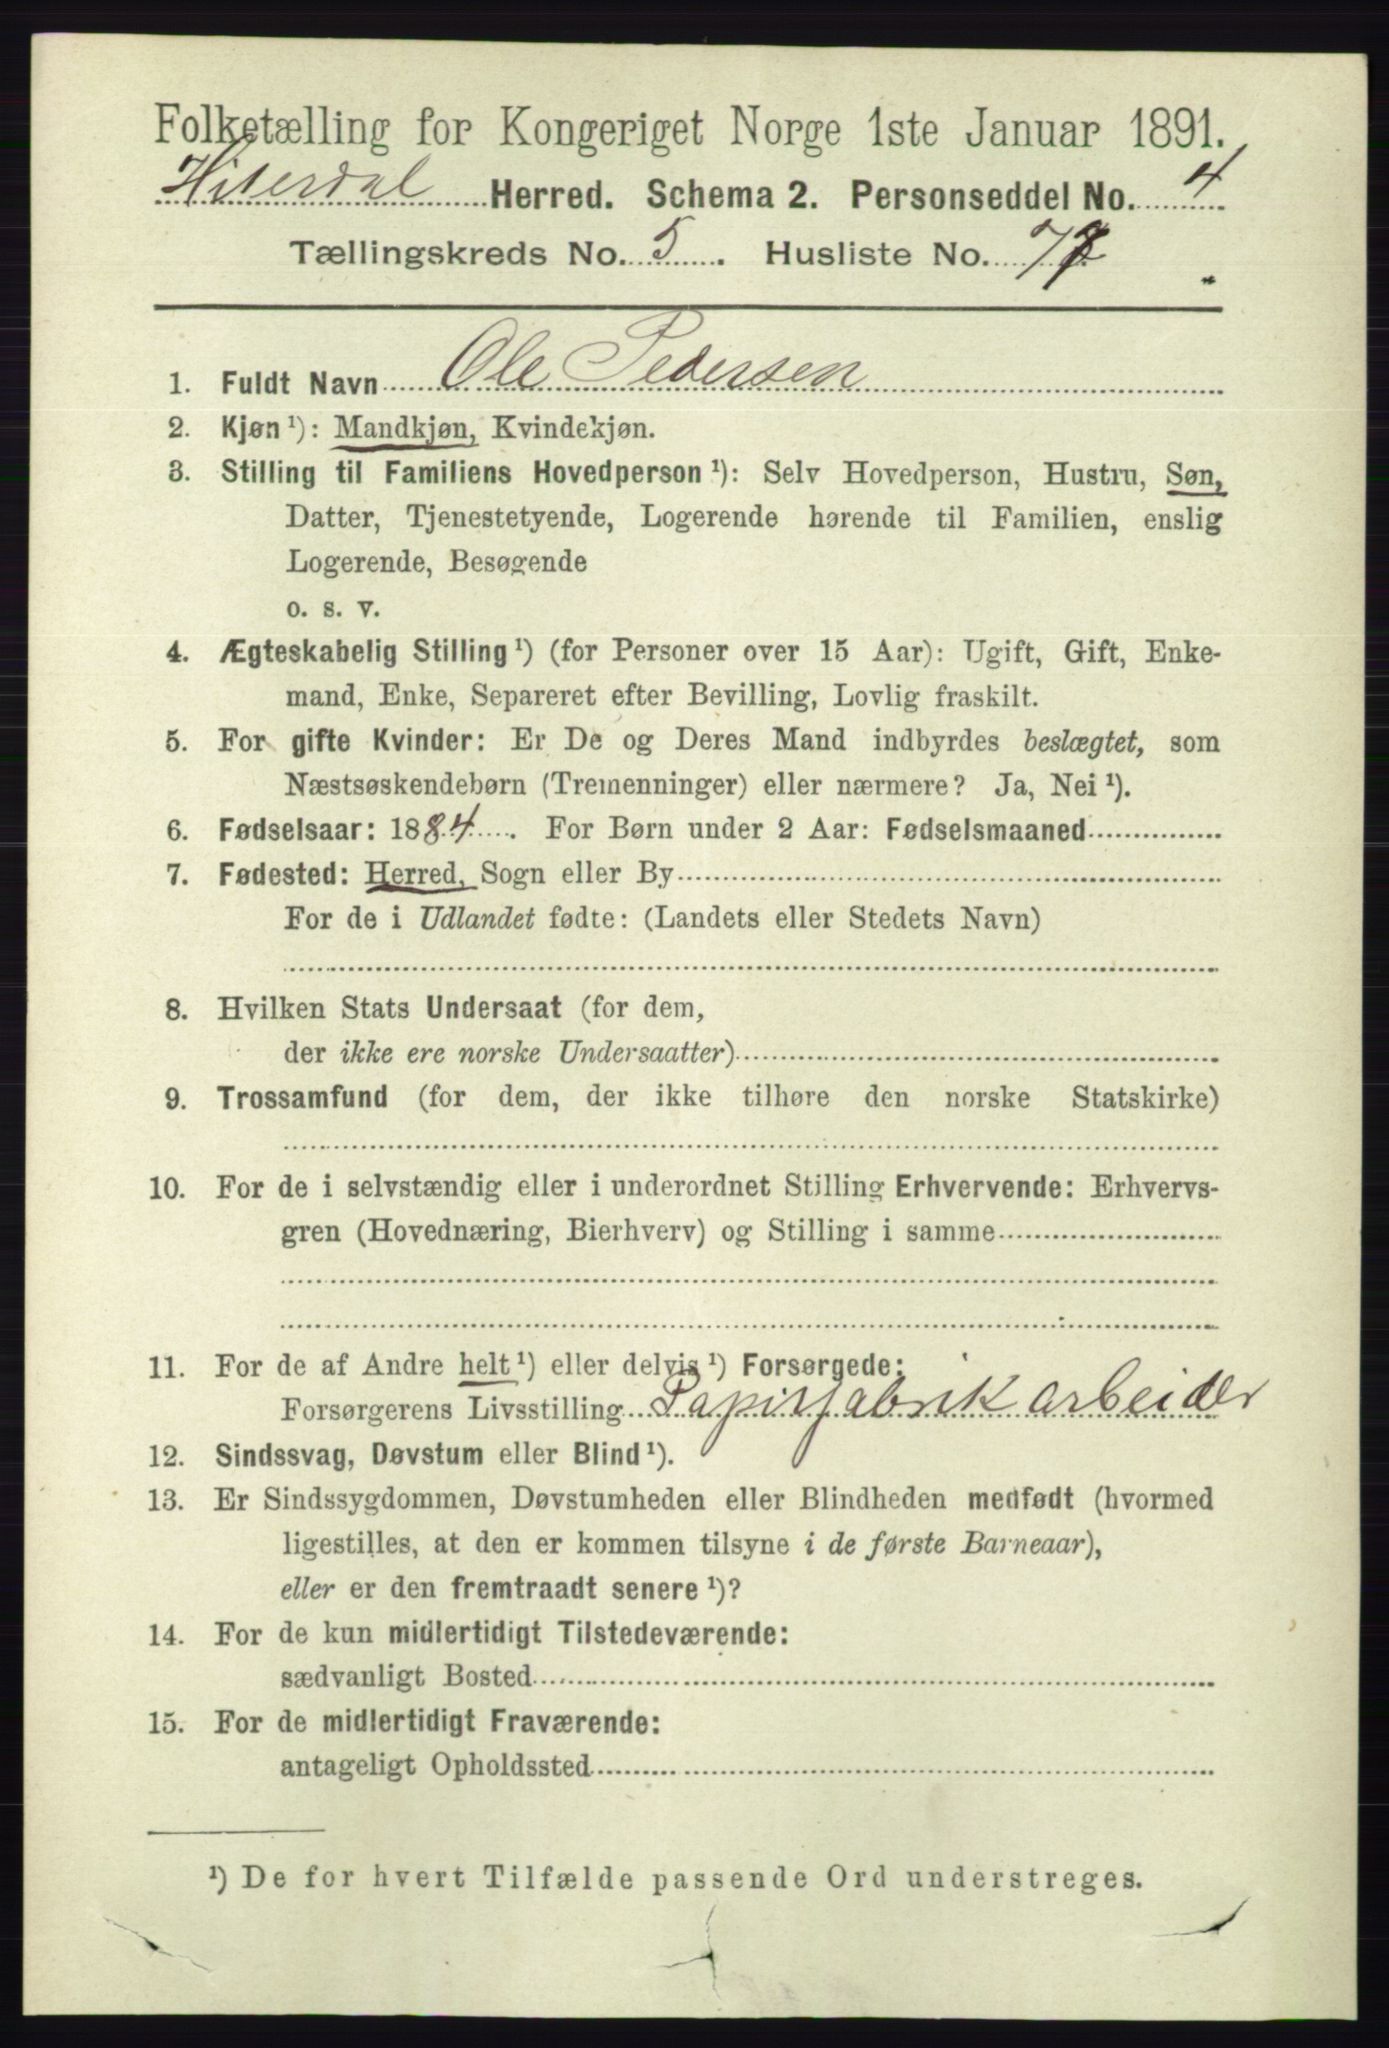 Folketælling for Kongeriget Norge 1ste Januar 1891.
Hiterdal Herred. Schema 2. Personseddel No. 4
Tællingskreds No. 5. Husliste No.
1. Fuldt Navn Ole Pedersen
2. Kjøn ¹): Mandkjøn, Kvindekjøn.
3. Stilling til Familiens Hovedperson ¹): Selv Hovedperson, Hustru, Søn,
Datter, Tjenestetyende, Logerende hørende til Familien, enslig
Logerende, Besøgende
o. s. v.
4. Ægteskabelig Stilling ¹) (for Personer over 15 Aar): Ugift, Gift, Enke-
mand, Enke, Separeret efter Bevilling, Lovlig fraskilt.
5. For gifte Kvinder: Er De og Deres Mand indbyrdes beslægtet, som
Næstsøskendebørn (Tremenninger) eller nærmere? Ja, Nei ¹).
6. Fødselsaar: 1884. For Børn under 2 Aar: Fødselsmaaned
7. Fødested: Herred, Sogn eller By
For de i Udlandet fødte: (Landets eller Stedets Navn)
8. Hvilken Stats Undersaat (for dem,
der ikke ere norske Undersaatter)
9. Trossamfund (for dem, der ikke tilhøre den norske Statskirke)
10. For de i selvstændig eller i underordnet Stilling Erhvervende: Erhvervs-
gren (Hovednæring, Bierhverv) og Stilling i samme
11. For de af Andre helt ¹) eller delvis ¹) Forsørgede:
Forsørgerens Livsstilling Papirfabrikarbeider
12. Sindssvag, Døvstum eller Blind ¹).
13. Er Sindssygdommen, Døvstumheden eller Blindheden medfødt (hvormed
ligestilles, at den er kommen tilsyne i de første Barneaar),
eller er den fremtraadt senere ¹)?
14. For de kun midlertidigt Tilstedeværende:
sædvanligt Bosted
15. For de midlertidigt Fraværende:
antageligt Opholdssted
¹) De for hvert Tilfælde passende Ord understreges.